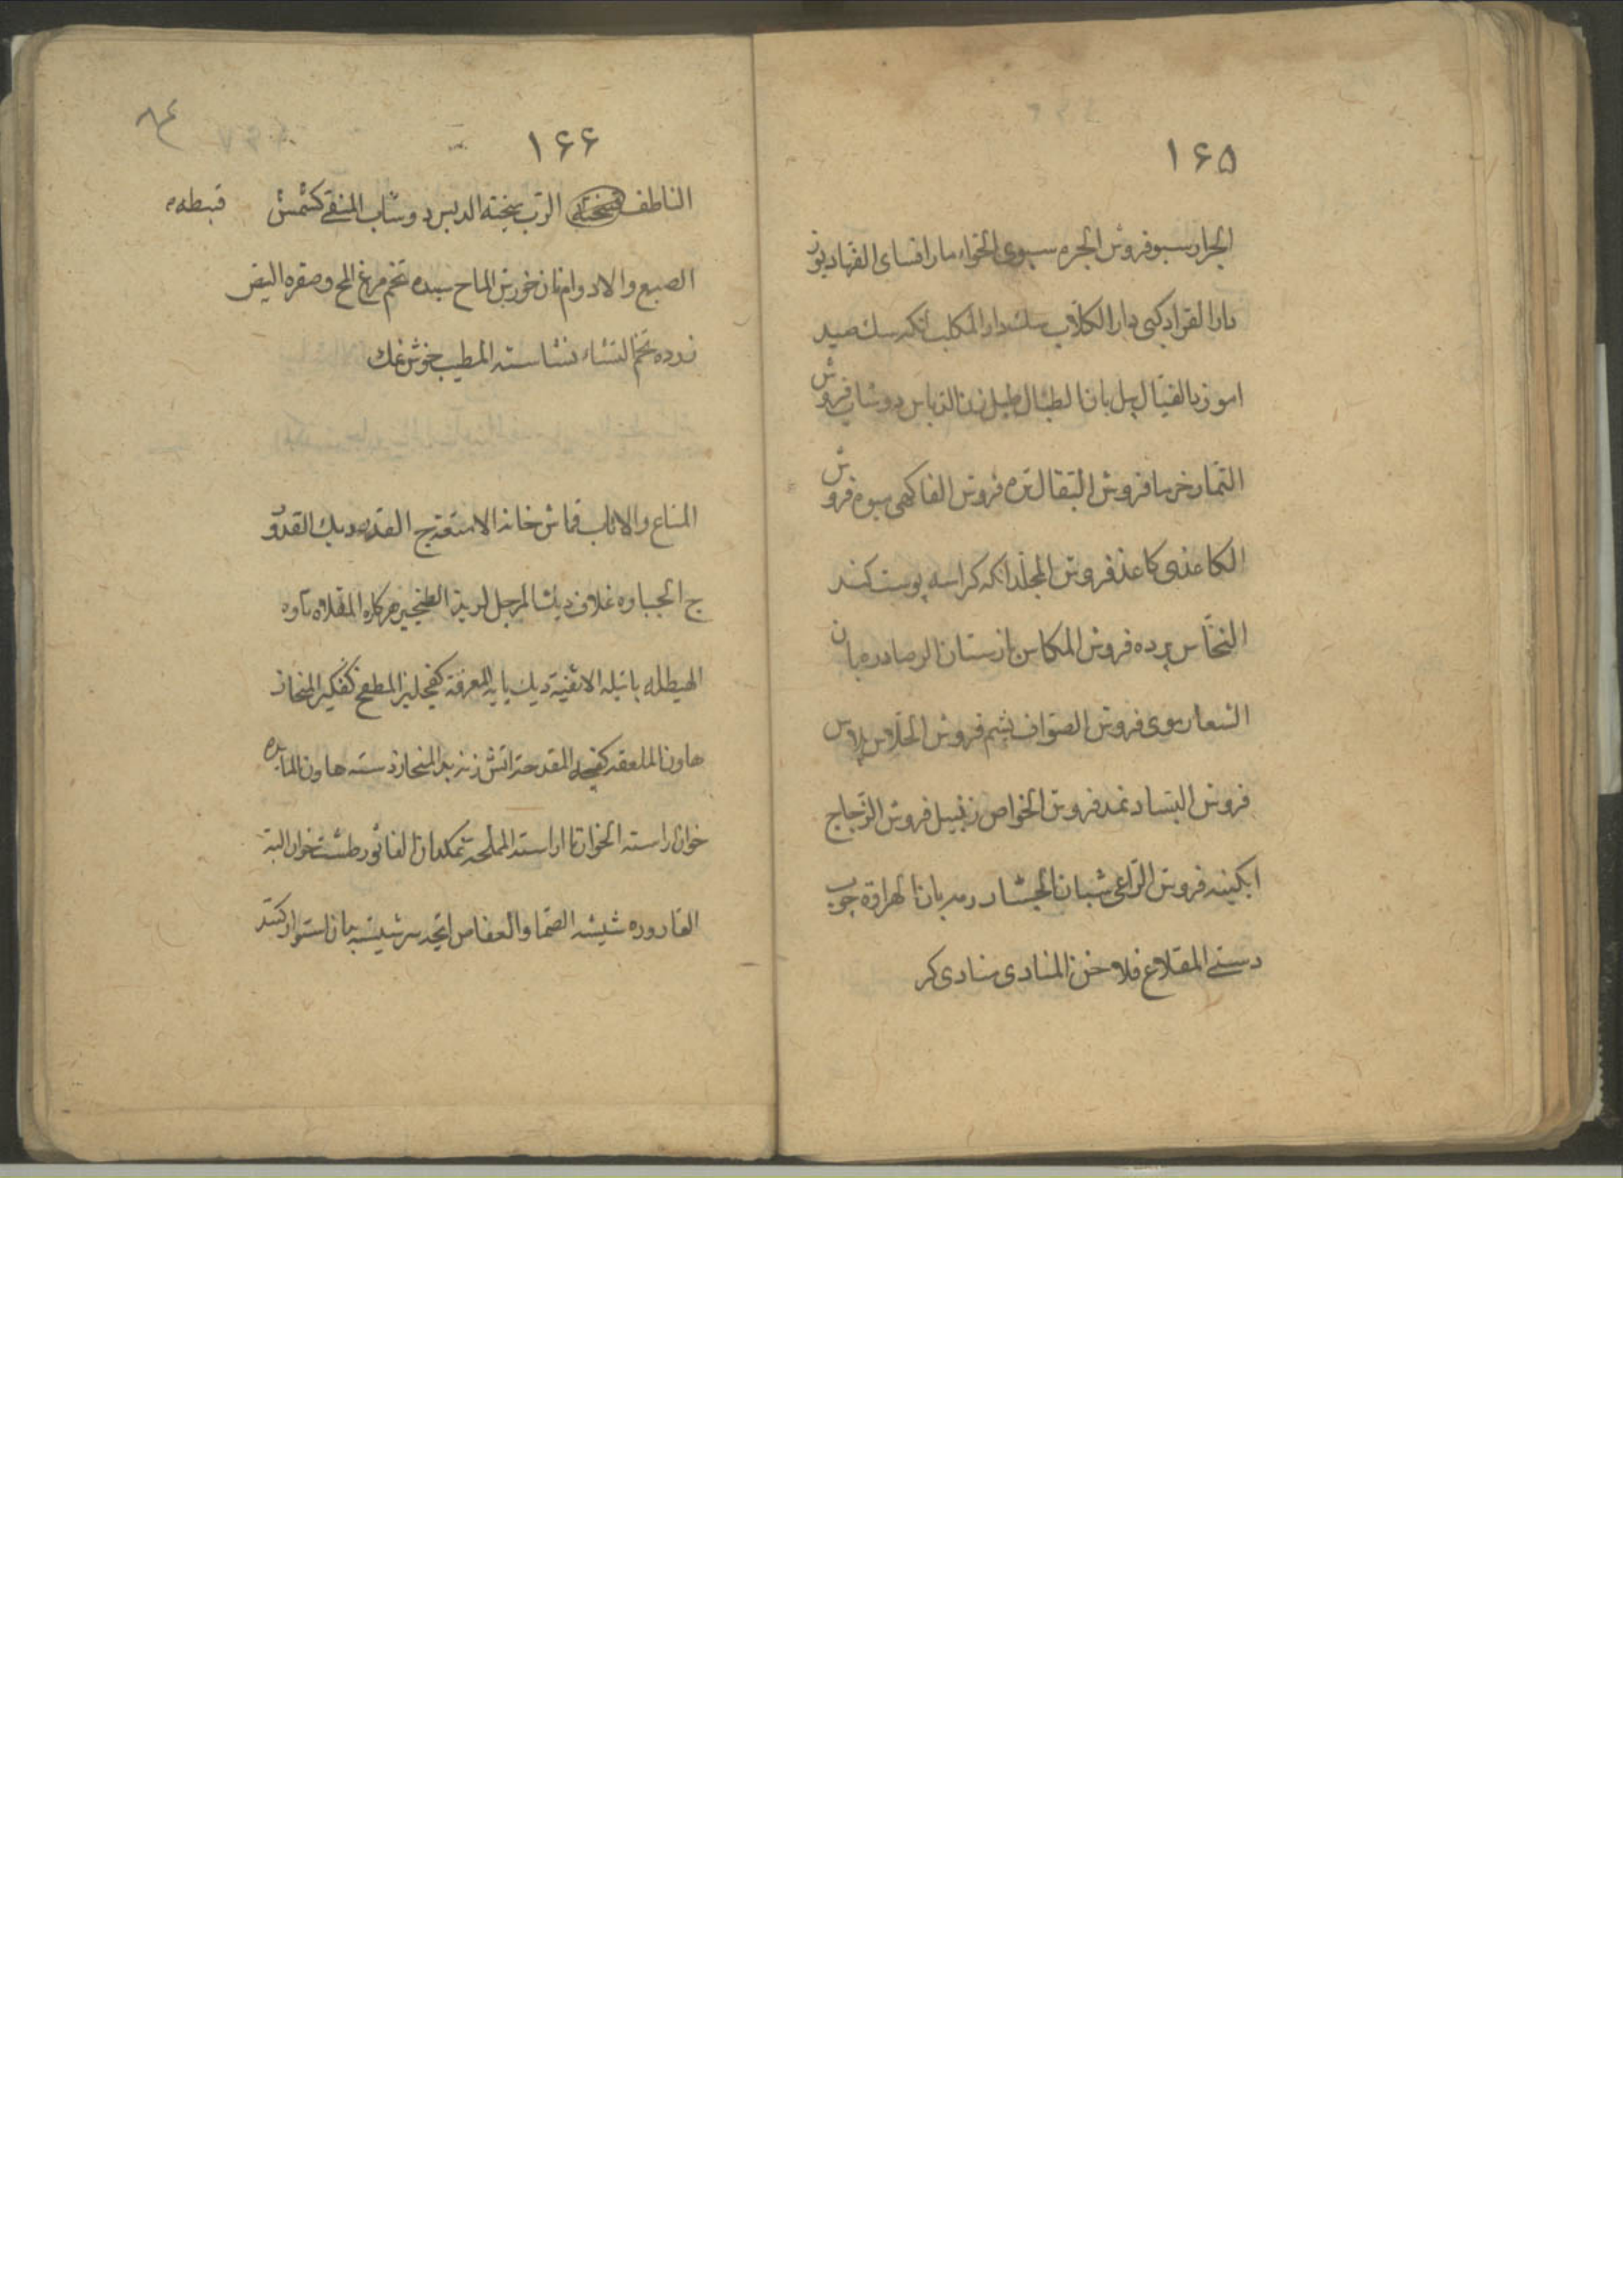 ۱۶۵
الجرار سبو فروش الجره سبوی الحواء مار افسای الفهاد یوز
دار القراد کپی دار الکلاب سک دار المکلب انکه سک صید
اموزد الفیال پیل بان الطبال طبل زن الدباس دوشاب فروش
التمار خرما فروش البقال تره فروش الفاکهی میوه فروش
الکاغذی کاغذ فروش المجلد انکه کراسه پوست کند
النخاس برده فروش المکاس باز ستان الرصاد ره بان
الشعار موی فروش الصواف پشم فروش الحلاس پلاس
فروش اللباد نمد فروش الخواص زنبیل فروش الزجاج
ابکینه فروش الراعی شبان الجشار رمه بان الهراوة چوب
دستی المقلاع فلاخن المنادی منادی کر
۱۶۶
الناطف الرب پخته الدبس دوشاب المنقی کشمش قبیطه
الصبغ والادوام نان خورش الماح سبیده تخم مرغ المح وصفره البیض
زرده تخم النشاء نشاسته المطیب خوش نمک
المتاع والاثاث قماش خانه الامتعة ج القدر دیک القدور
ج الجباوه غلاف دیک المرجل لوید الطنجیر هرکاره المقلاه تاوه
الهیطله پاتیله الاثفیة دیک پایه المغرفة کفجلیز المطفح کفکیر المنحاز
هاون الملعقه کفچه المقدحة اتش زنه ید المنحاز دسته هاون المایده
خوان اراسته الخوان نا اراسته المملحة نمکدان الفاثور طشت خوان
القاروره شیشه الصماد والعفاص انچه سر شیشه بدان استوار کنند